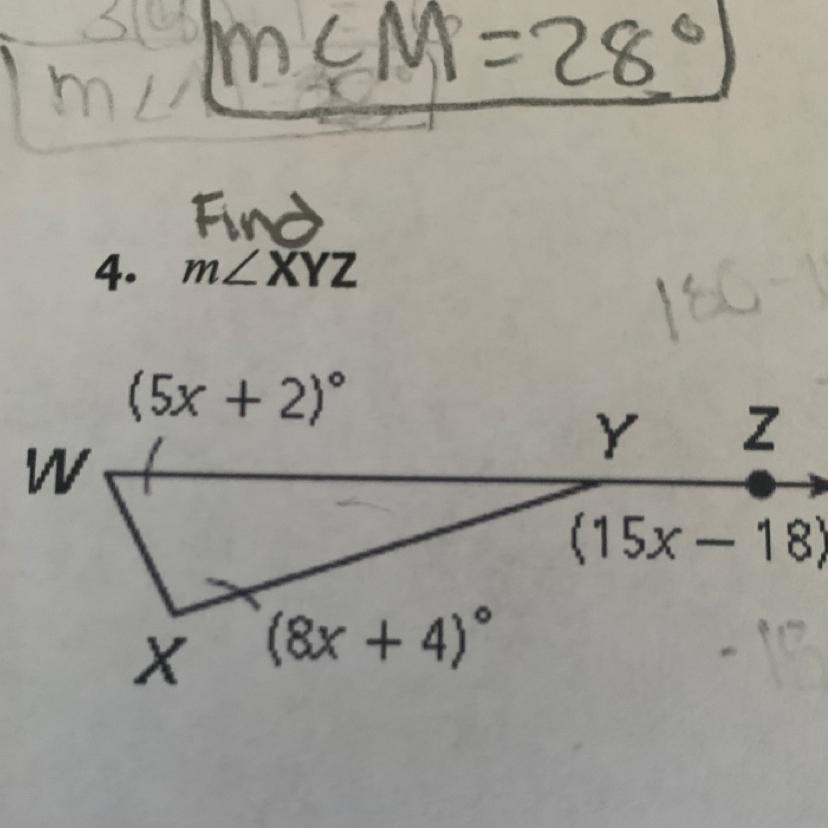 m∠M = 28°
Find
4. m∠XYZ
(5x + 2)°
W
Y
Z
(15x − 18)
X
(8x + 4)°